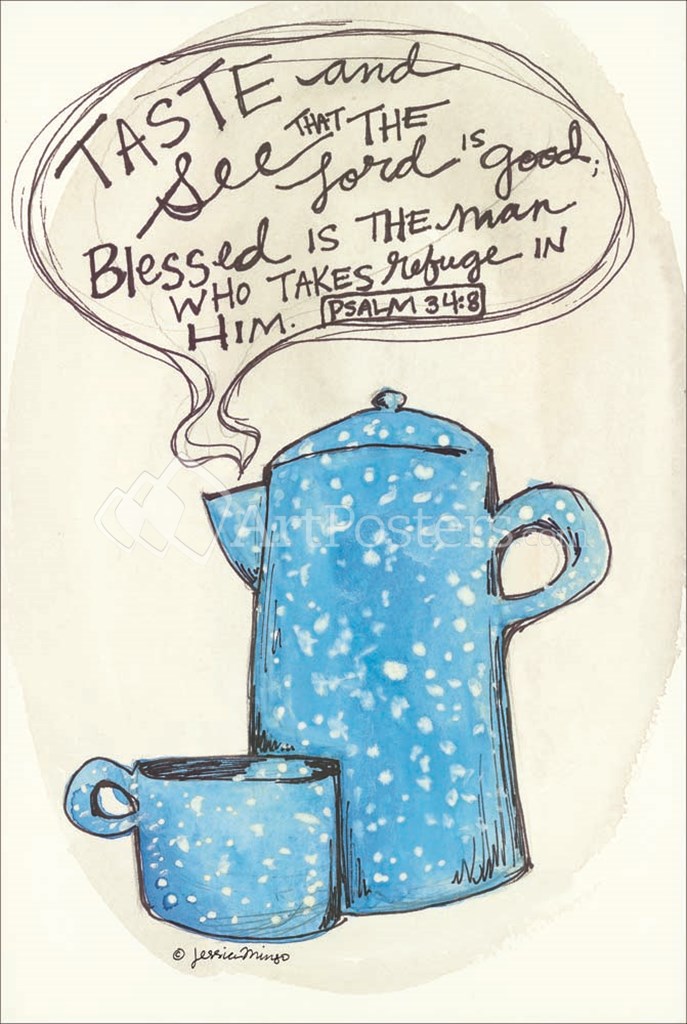 TASTE and
See THAT THE
Lord IS good;
Blessed IS THE man
WHO TAKES refuge IN
HIM. PSALM 34:8
ArtPosters
© Jessica Mingo